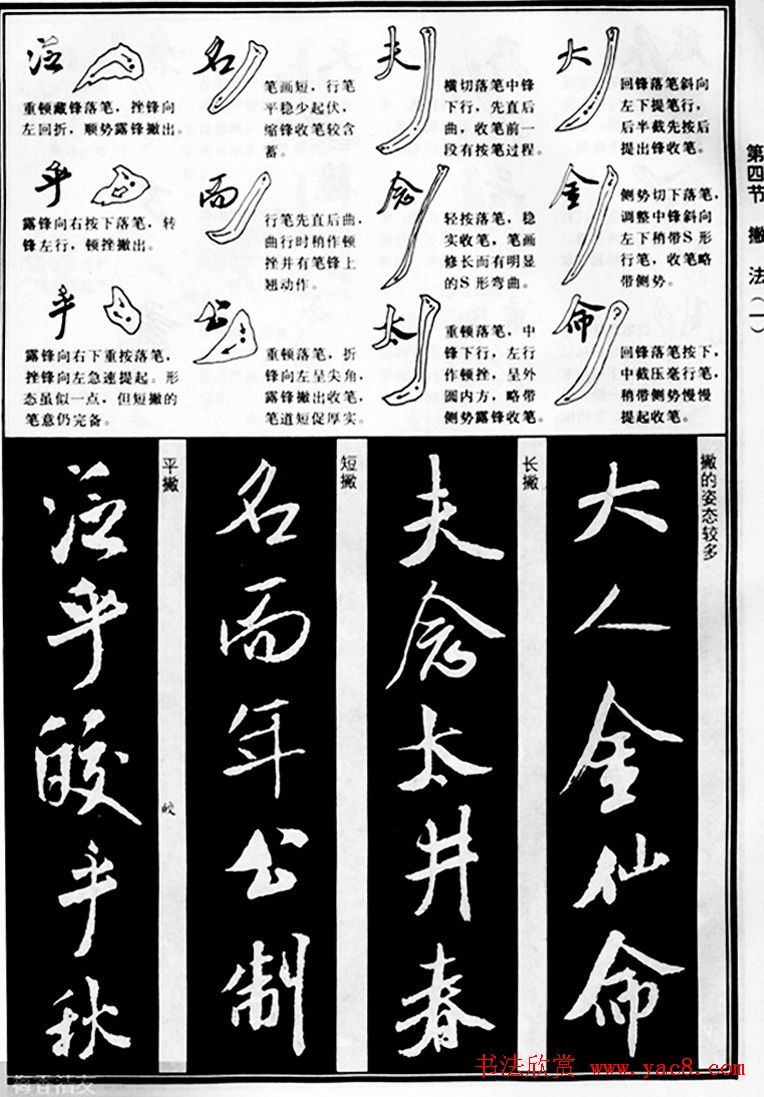 第四节 撇法(一)
大
回锋落笔斜向
左下提笔行，
后半截先按后
提出锋收笔。
金
侧势切下落笔，
调整中锋斜向
左下稍带S形
行笔，收笔略
带侧势。
命
回锋落笔按下，
中截压毫行笔，
稍带侧势慢慢
提起收笔。
夫
横切落笔中锋
下行，先直后
曲，收笔前一
段有按笔过程。
念
轻按落笔，稳
实收笔，笔画
修长而有明显
的S形弯曲。
太
重顿落笔，中
锋下行，左行
作顿挫，呈外
圆内方，略带
侧势露锋收笔。
名
笔画短，行笔
平稳少起伏，
缩锋收笔较含
蓄。
而
行笔先直后曲，
曲行时稍作顿
挫并有笔锋上
翘动作。
公
重顿落笔，折
锋向左呈尖角，
露锋撇出收笔，
笔道短促厚实。
泛
重顿藏锋落笔，挫锋向
左回折，顺势露锋撇出。
乎
露锋向右按下落笔，转
锋左行，顿挫撇出。
乎
露锋向右下重按落笔，
挫锋向左急速提起。形
态虽似一点，但短撇的
笔意仍完备。
撇的姿态较多
大人金仙命
长撇
夫念太井春
短撇
名而年公制
平撇
皎
泛乎皎乎秋
书法欣赏 www.yac8.com